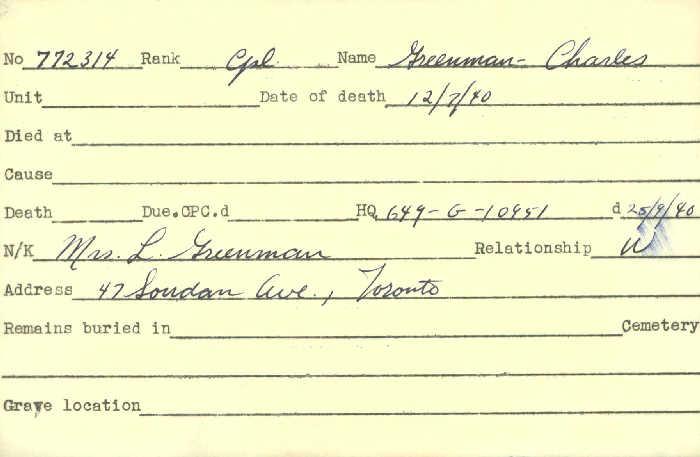 No 772314 Rank Cpl. Name Greenman- Charles
Unit Date of death 12/7/40
Died at
Cause
Death Due.OPC.d HQ 649-G-10951 d 25/9/40
N/K Mrs. L. Greenman Relationship W
Address 47 Soudan Ave., Toronto
Remains buried in Cemetery
Grave location